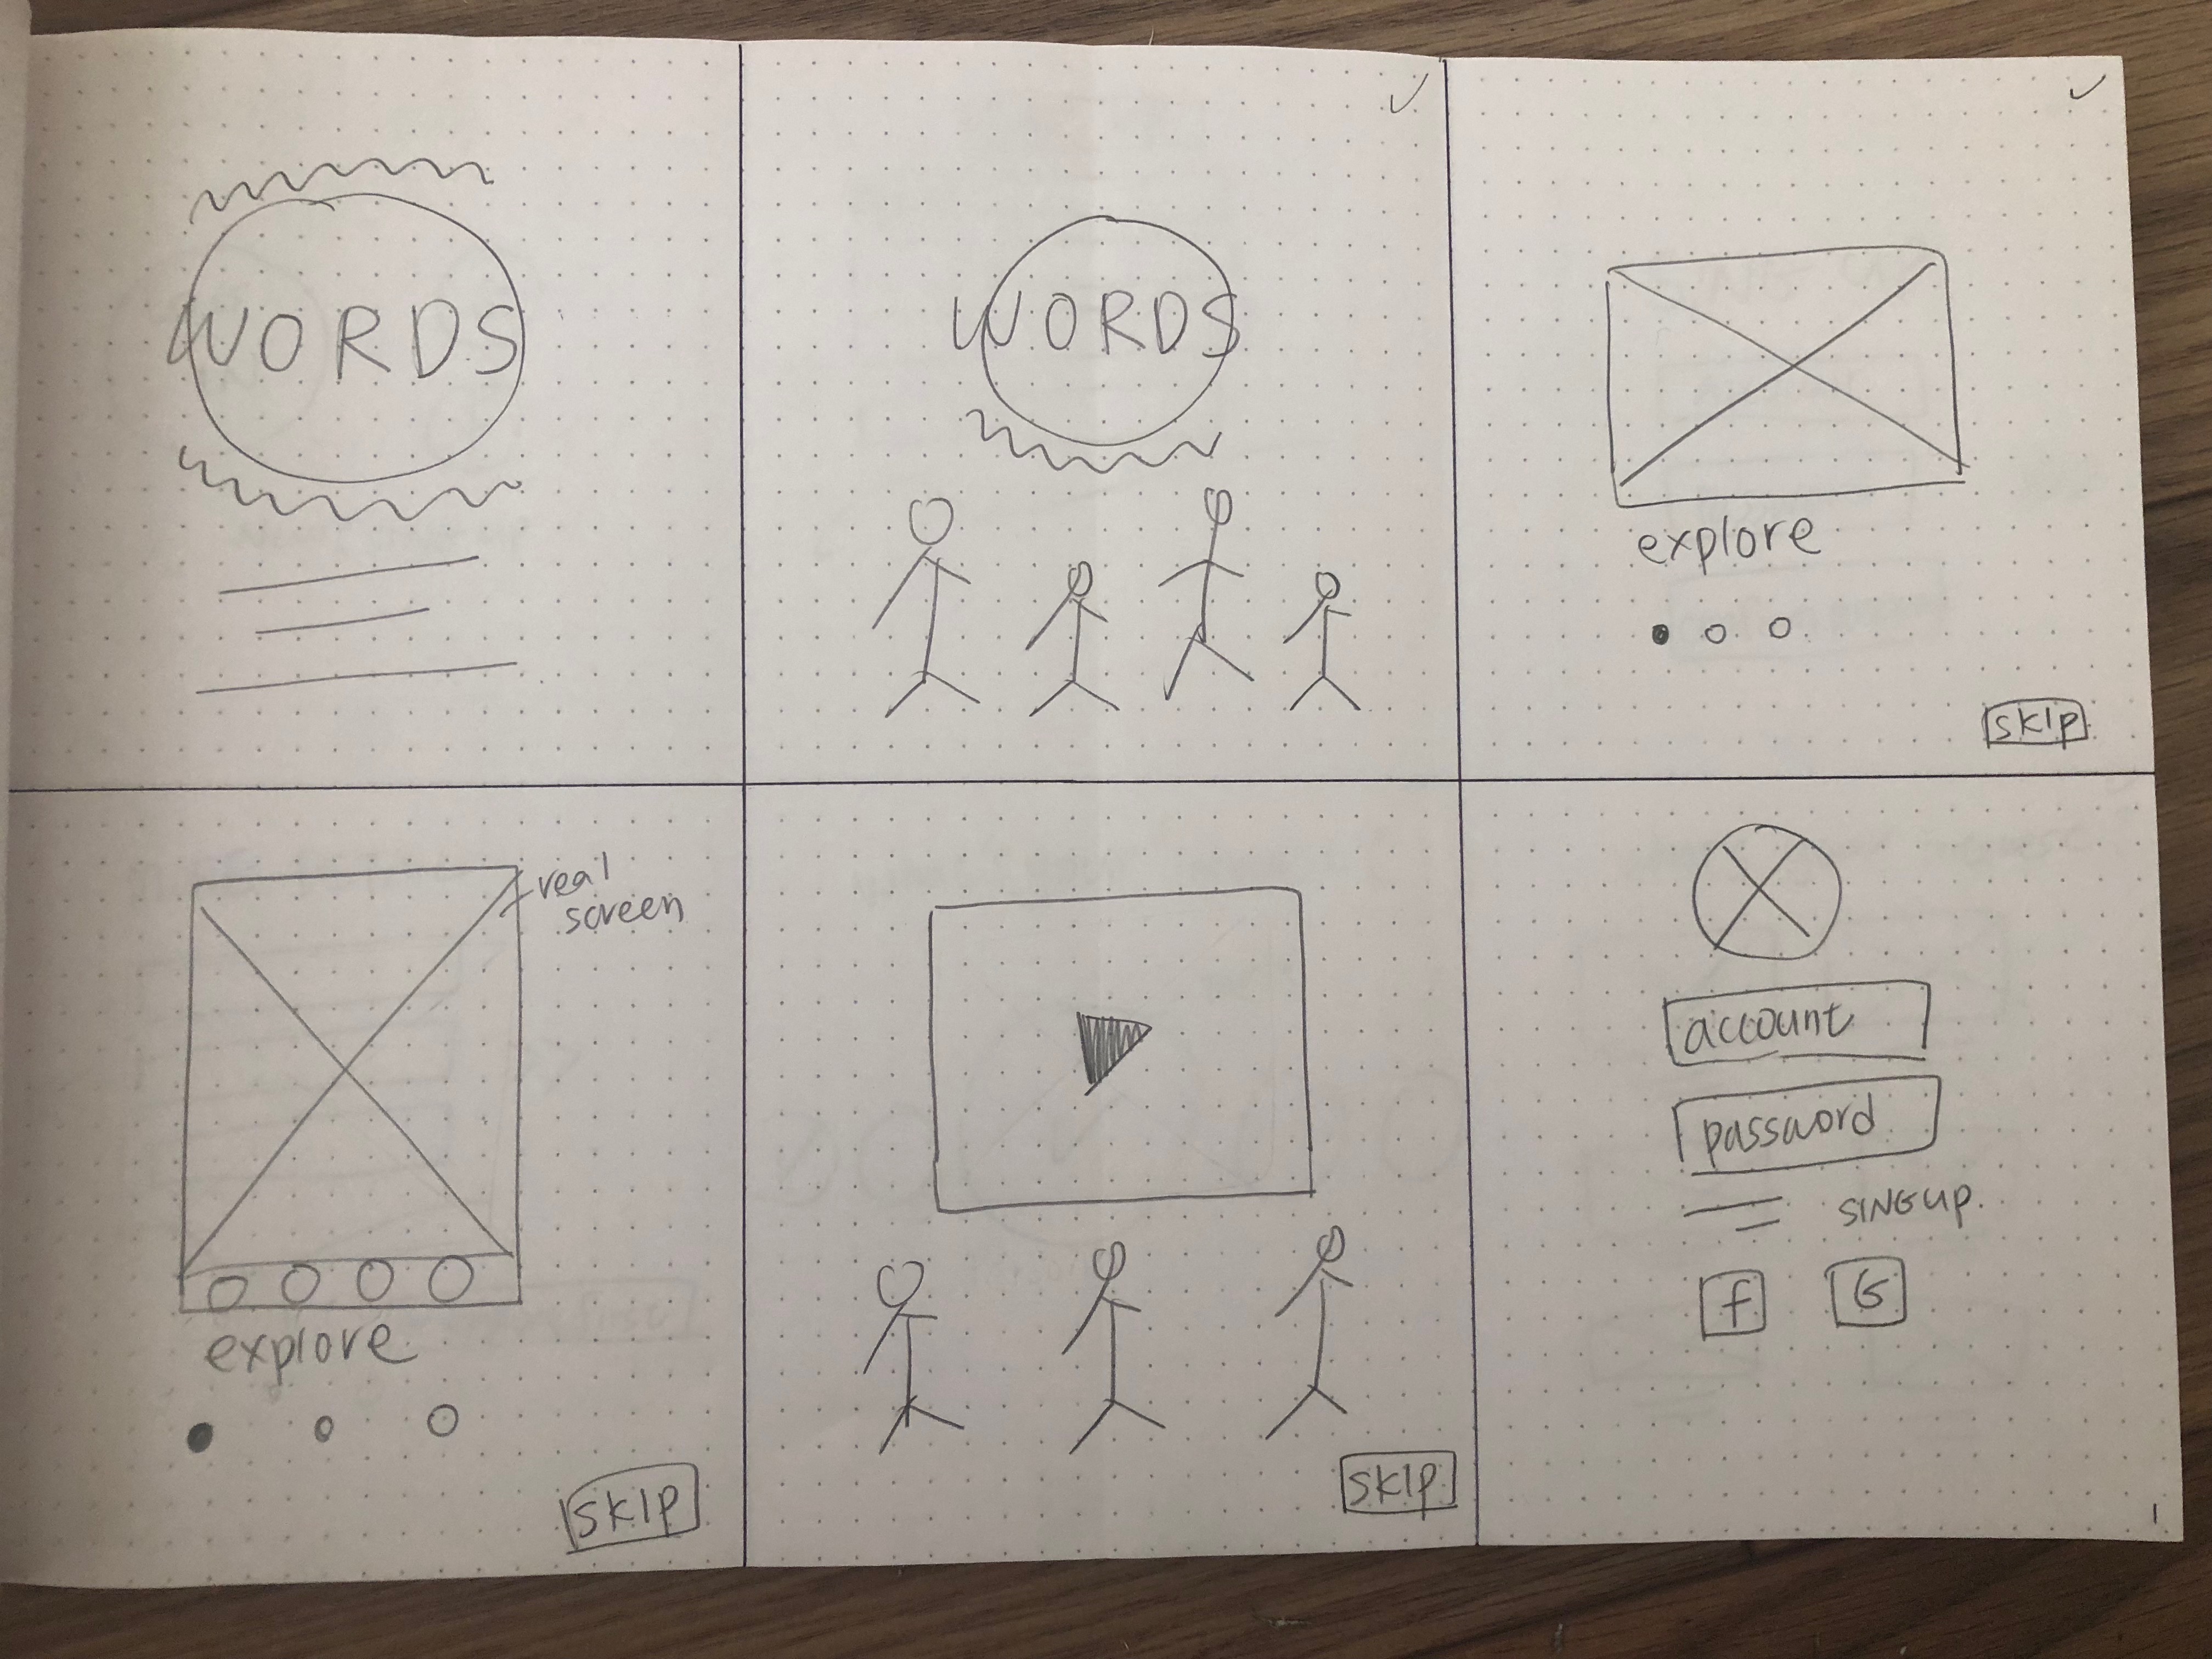 WORDS
WORDS
explore
skip
real
screen
explore
skip
skip
account
password
SINGUP.
f G
1